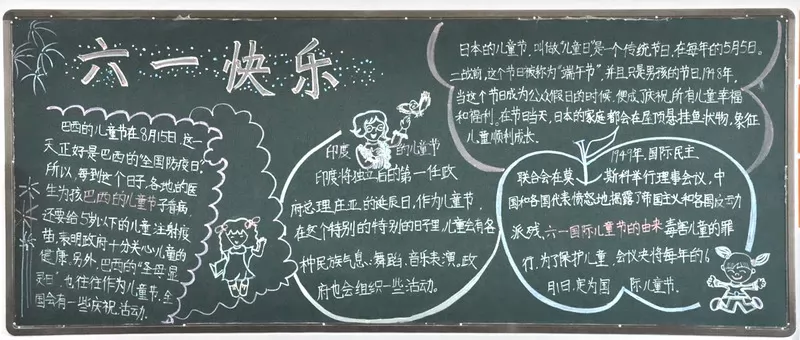 六一快乐
巴西的儿童节在8月15日,这一
天正好是巴西的全国防疫日。
所以,每到这个日子,各地的医
生为孩巴西的儿童节子看病,
还要给5岁以下的儿童注射疫
苗,表明政府十分关心儿童的
健康。另外,巴西的"圣母显
灵日",也往往作为儿童节,全
国会有一些庆祝活动。
印度的儿童节
印度将独立后的第一任政
府总理庄亚的诞辰日,作为儿童节,
在这个特别的特别的日子里,儿童会有各
种民族气息:舞蹈、音乐表演。政
府也会组织一些活动。
日本的儿童节,叫做"儿童日"是一个传统节日,在每年的5月5日。
二战前,这个节日被称为"端午节",并且只是男孩的节日,1948年,
当这个节日成为公众假日的时候,便成了庆祝所有儿童幸福
和福利。在节日当天,日本的家庭都会在屋顶悬挂鱼状物,象征
儿童顺利成长.
1949年,国际民主
联合会在莫斯科举行理事会议,中
国和各国代表愤怒地揭露了帝国主义和各国反动
派残、六一国际儿童节的由来毒害儿童的罪
行,为了保护儿童,会议决将每年的6
月1日,定为国际儿童节.